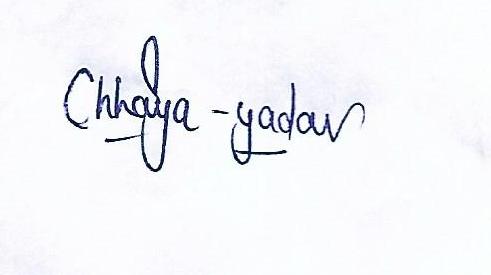 Chhaya - yadav